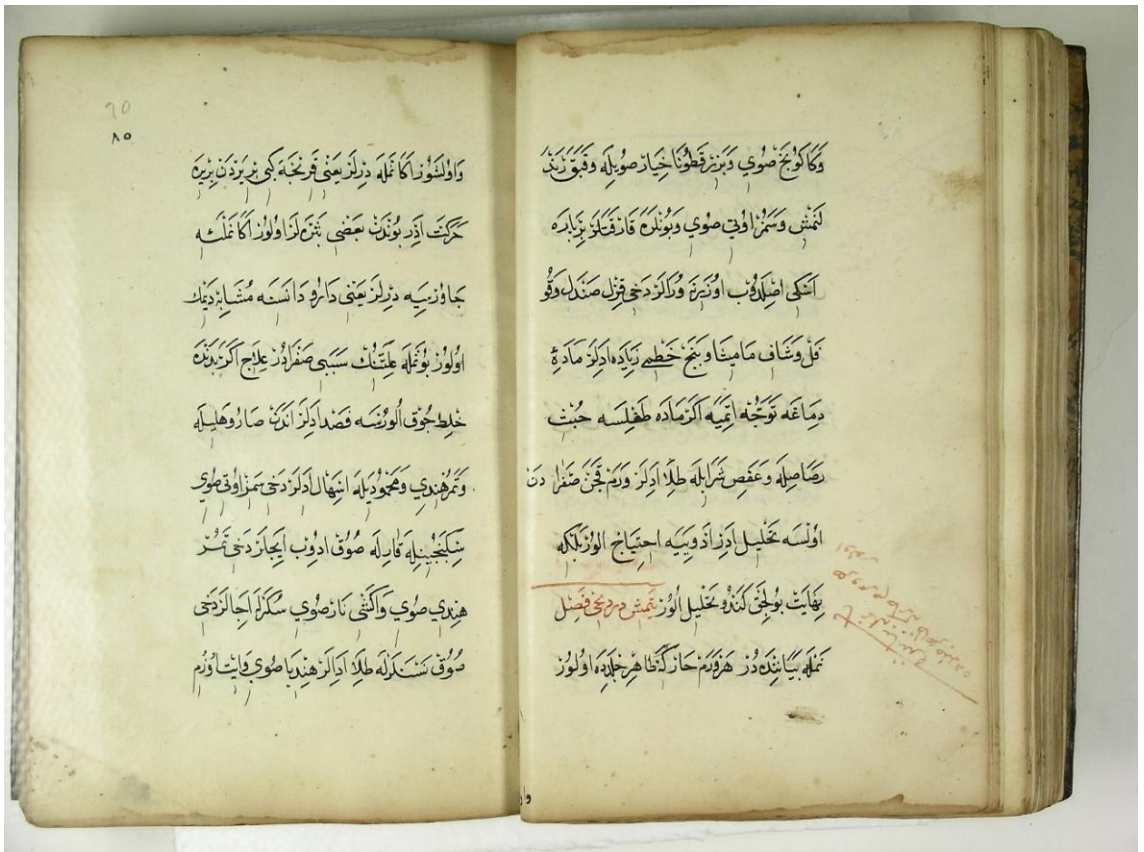 وكاكونج صوي وبزر قطونا خيار صويله وقبق رند
لنمش وسمز اوتي صوي وبونلره قارقتلر بزپاره
اسكي اصلدوب اوزرينه ورالر دخي قزل صندل وقو
فل وشاف ماميثا وبنج خطمي زياده ادلر ماده
دماغه توجه اتميه اكر ماده طفلسه خبث
رصاصيله وعفص شرابله طلا ادلر ورم قجن صفرا دن
اولسه تحليل ادر ادوييه احتياج الورز بلكه
نهايت بولجق كندو تحليل الور يتمش دردنجي فصل
نمله بياننده در هر ورم حار كه ظاهر جلدده اولور
واولشور اكا نمله درلر يعني قرنجه كبي بر يردن بريره
حركت ادر بوندن بعضي بثره لر اولور اكا نملۀ
جاورسيه درلر يعني دارو دانسنه مشابه ديمك
اولور بو نمله علتنك سببي صفرادر علاج اكر بدنده
خلط جوق الورسه فصد ادلر اندن صارو هليله
وتمر هندي ومحموديله اسهال ادلر دخي سمز اوتي صوي
سكنجبينله قارله صوق ادوب ايجلر دخي تمر
هندي صوي واكشي نار صوي سكرله اجالر دخي
صوق نسنلرله طلا ادالر هنديا صوي قايتا اوزم
٩٥
٨٥